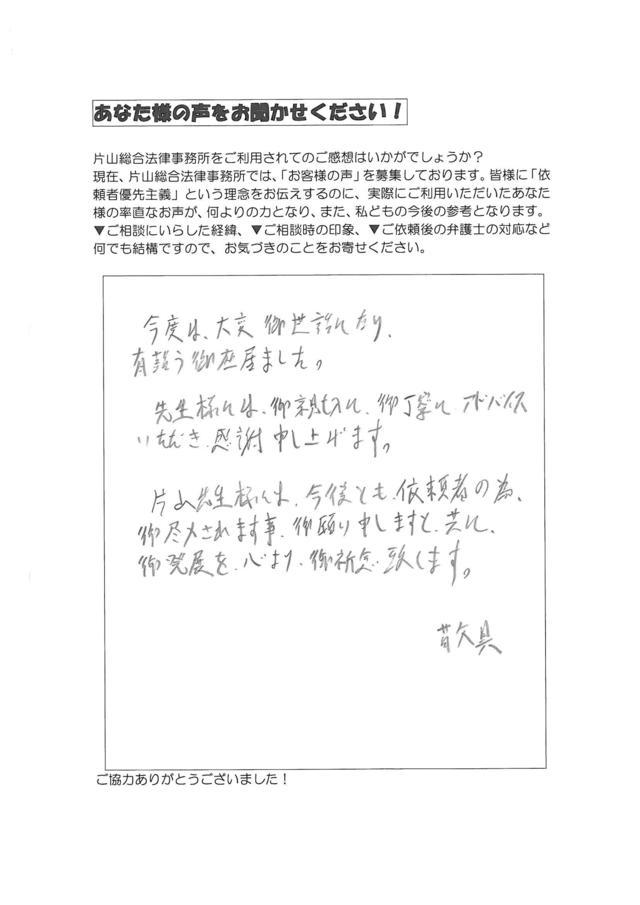 あなた様の声をお聞かせください！
片山総合法律事務所をご利用されてのご感想はいかがでしょうか？
現在、片山総合法律事務所では、「お客様の声」を募集しております。皆様に「依
頼者優先主義」という理念をお伝えするのに、実際にご利用いただいたあなた
様の率直なお声が、何よりの力となり、また、私どもの今後の参考となります。
▼ご相談にいらした経緯、▼ご相談時の印象、▼ご依頼後の弁護士の対応など
何でも結構ですので、お気づきのことをお寄せください。
今度は、大変御世話になり、
有難う御座居ました。
先生様には、御親切に、御丁寧に アドバイス
いただき、感謝申し上げます。
片山先生様には、今後とも、依頼者の為、
御尽力されます事、御願り申しますと、共に、
御発展を、心より、御祈念致します。
敬具
ご協力ありがとうございました！